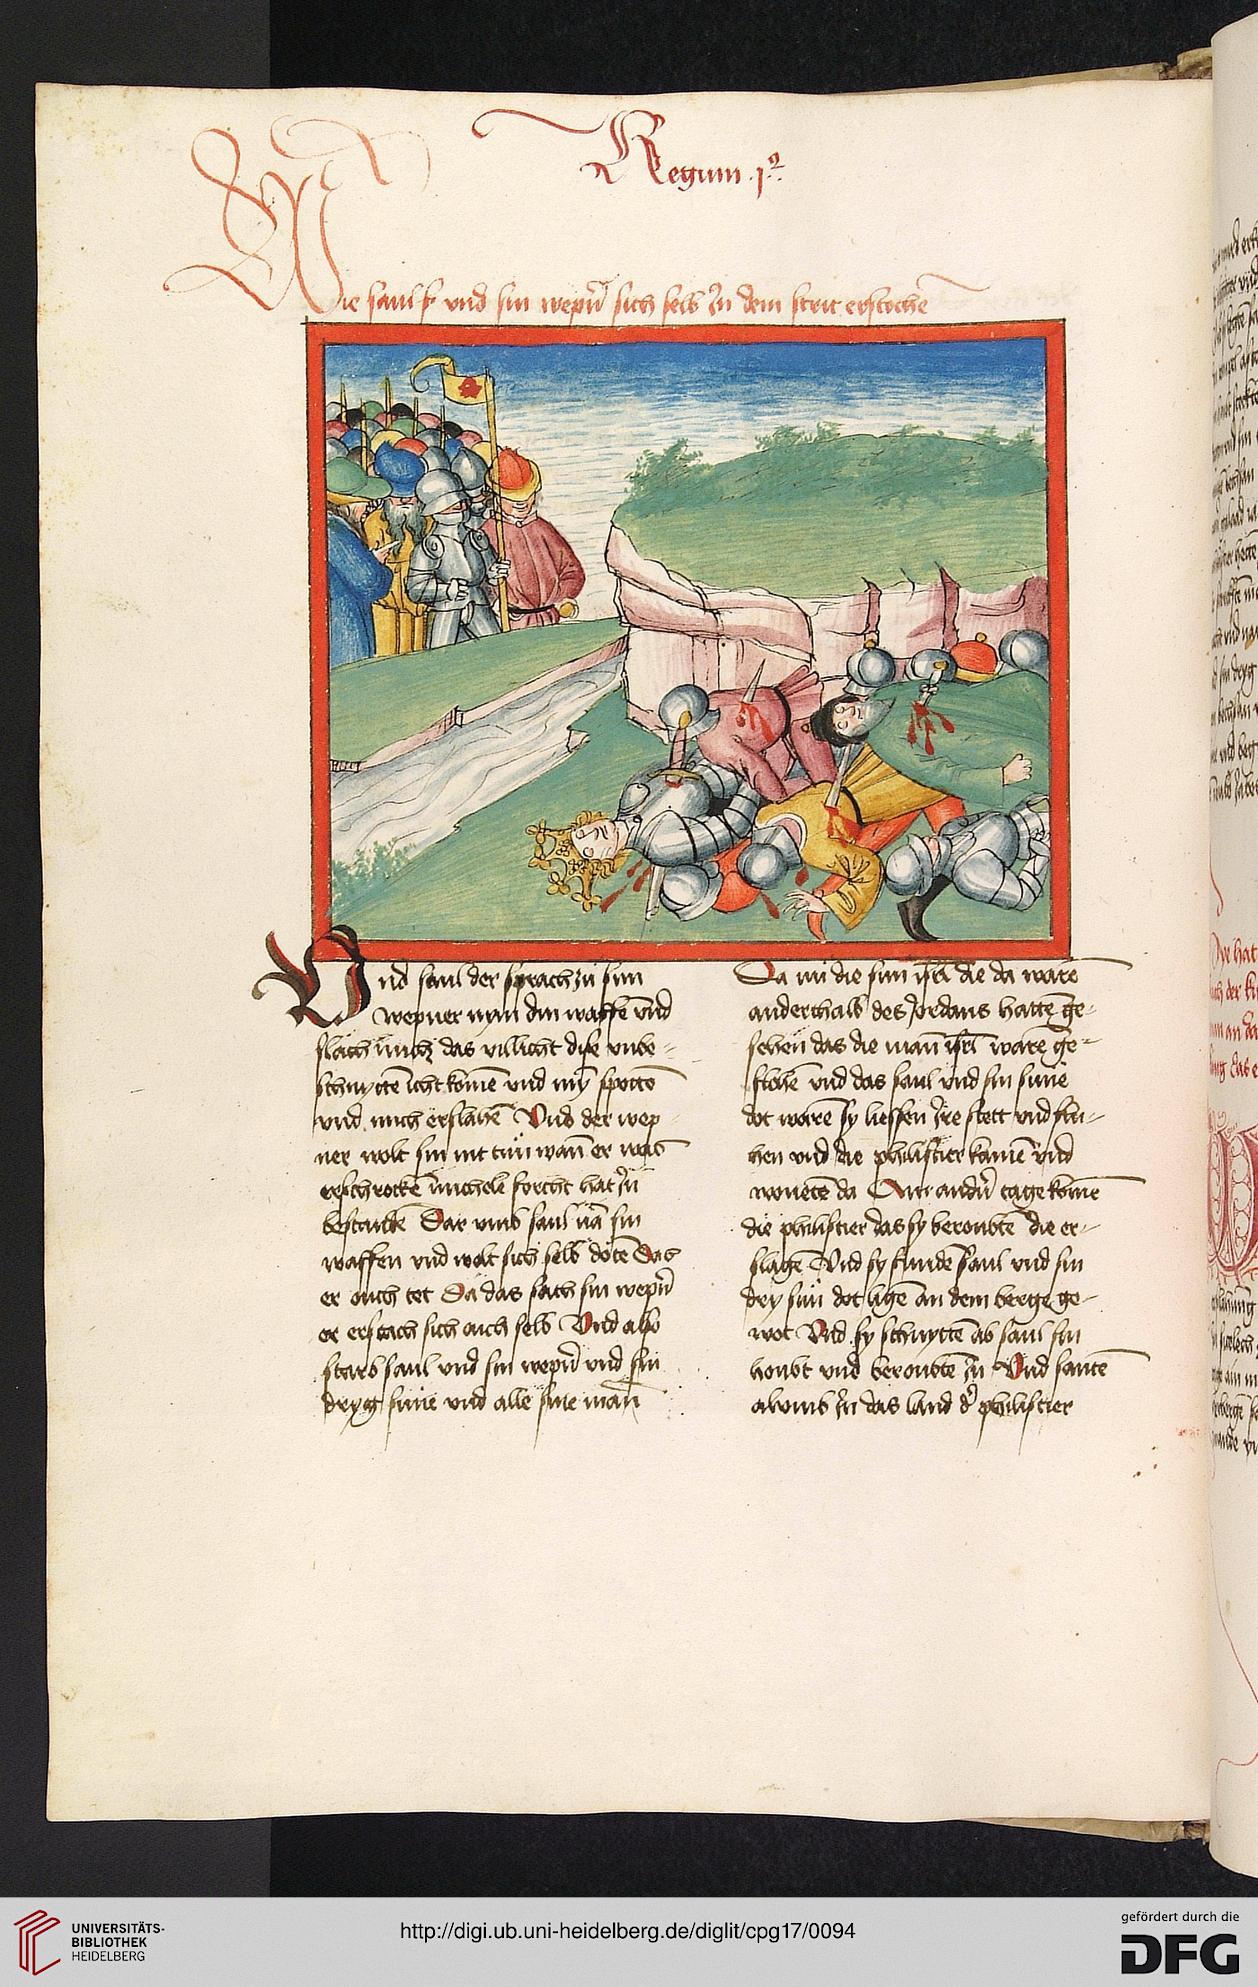 Regum .jo.
Wie saul k vnd sin wepnr̄ sich selb In dem strit erstochē
Vnd saul der sprach zu sim
wepner nym din waffē vnd
slach mich das villicht dise vnbe=
schnyttē icht komē vnd my̅ spottē
vnd mich erslahē Vnd der wep
ner wolt sin nit tun wan̄ er was
erschrockē michele forcht hat In
bestandē Dar vmb saul nā sin
waffen vnd wolt sich selb dotē Das
er ouch tet Da das sach sin wepnr̄
er erstach sich ouch selb Vnd also
starb saul vnd sin wepnr̄ vnd sin
dryg sune vnd alle sine man̄
Da nu die sun isrl̄ die da warē
anderthalb des Jordans hattē ge=
sehen das die man̄ isrl̄ warē ge=
flohē vnd das saul vnd sin sune
dot warē sy liessen Ire stett vnd flu=
hen vnd die philistier kamē vnd
wonetē da Am andn̄ tage komē
die philistier das sy beroubtē die er=
slagē Vnd sy fundē saul vnd sin
dry sun dot ligē an dem berge ge=
wot Vnd sy schnyttē ab saul sin
houbt vnd beroubtē In Vnd santē
alvmb In das land dr̄ philistier
UNIVERSITÄTS-
BIBLIOTHEK
HEIDELBERG
http://digi.ub.uni-heidelberg.de/diglit/cpg17/0094
gefördert durch die
DFG